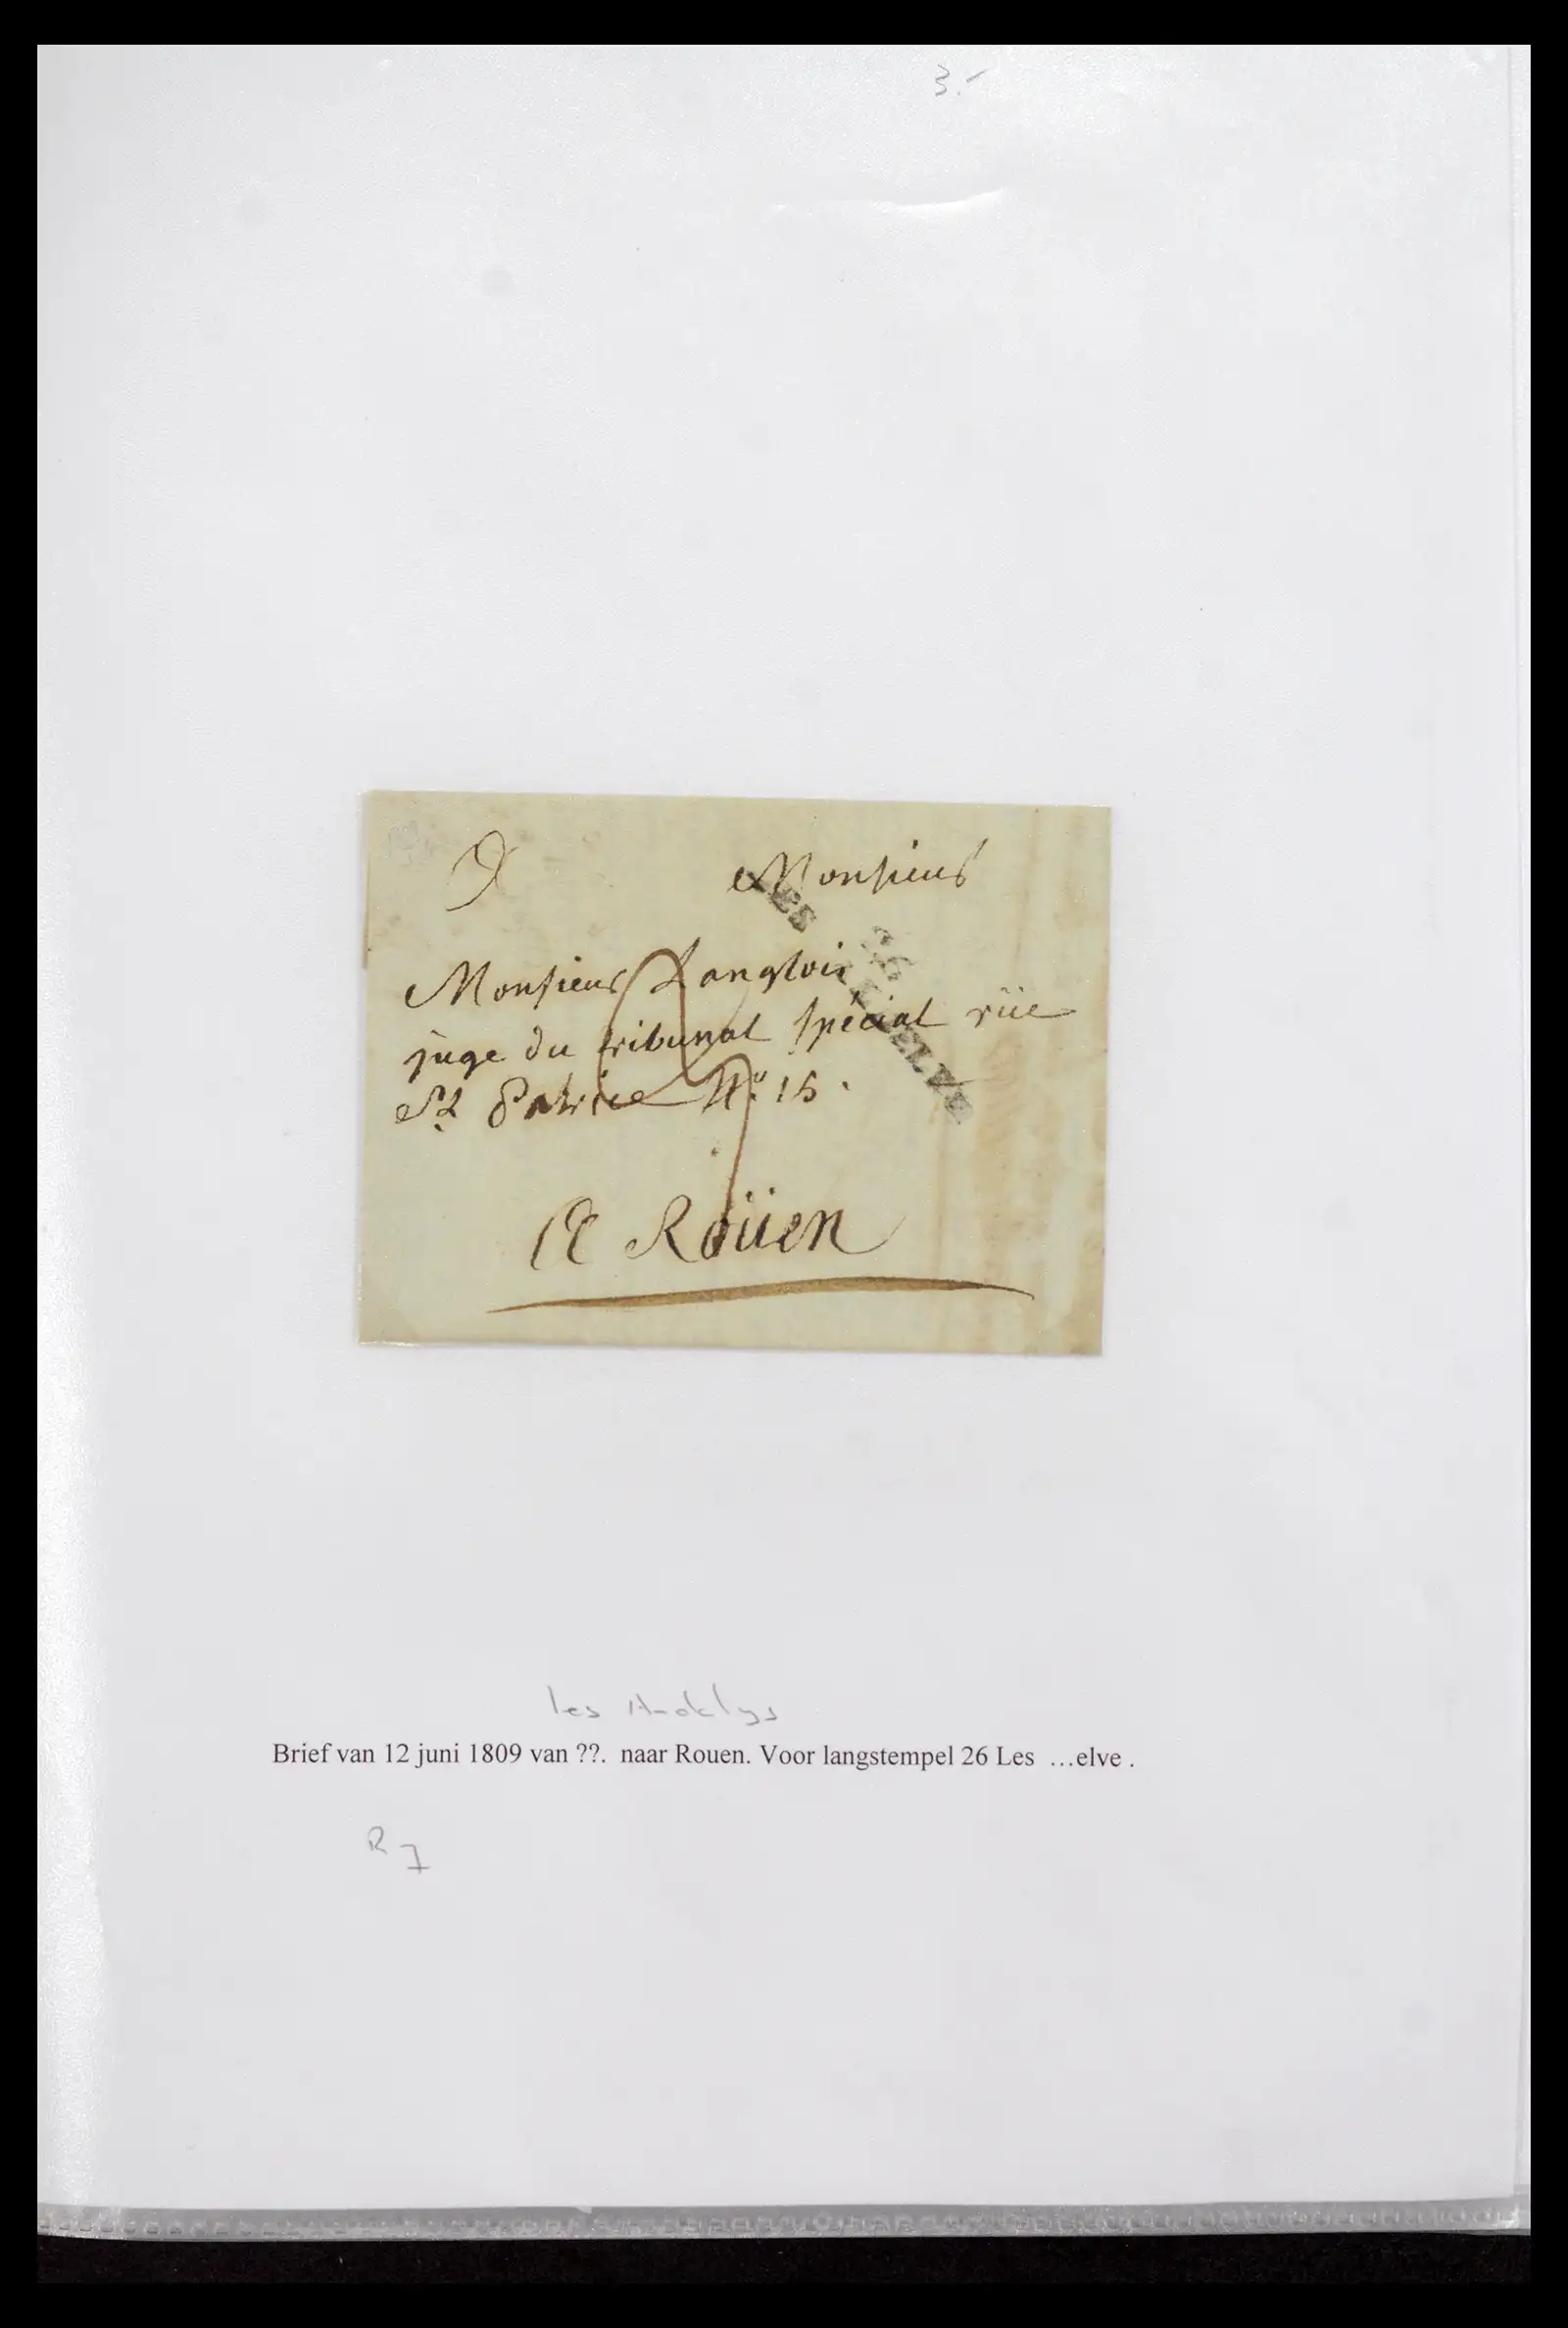 3.-
A Monsieur
Monsieur Langlois
juge du tribunal spécial rüe
St Patrice N.o 15.
A Roüen
LES
26
ELYS
les Andelys
Brief van 12 juni 1809 van ??. naar Rouen. Voor langstempel 26 Les …elve .
R 7